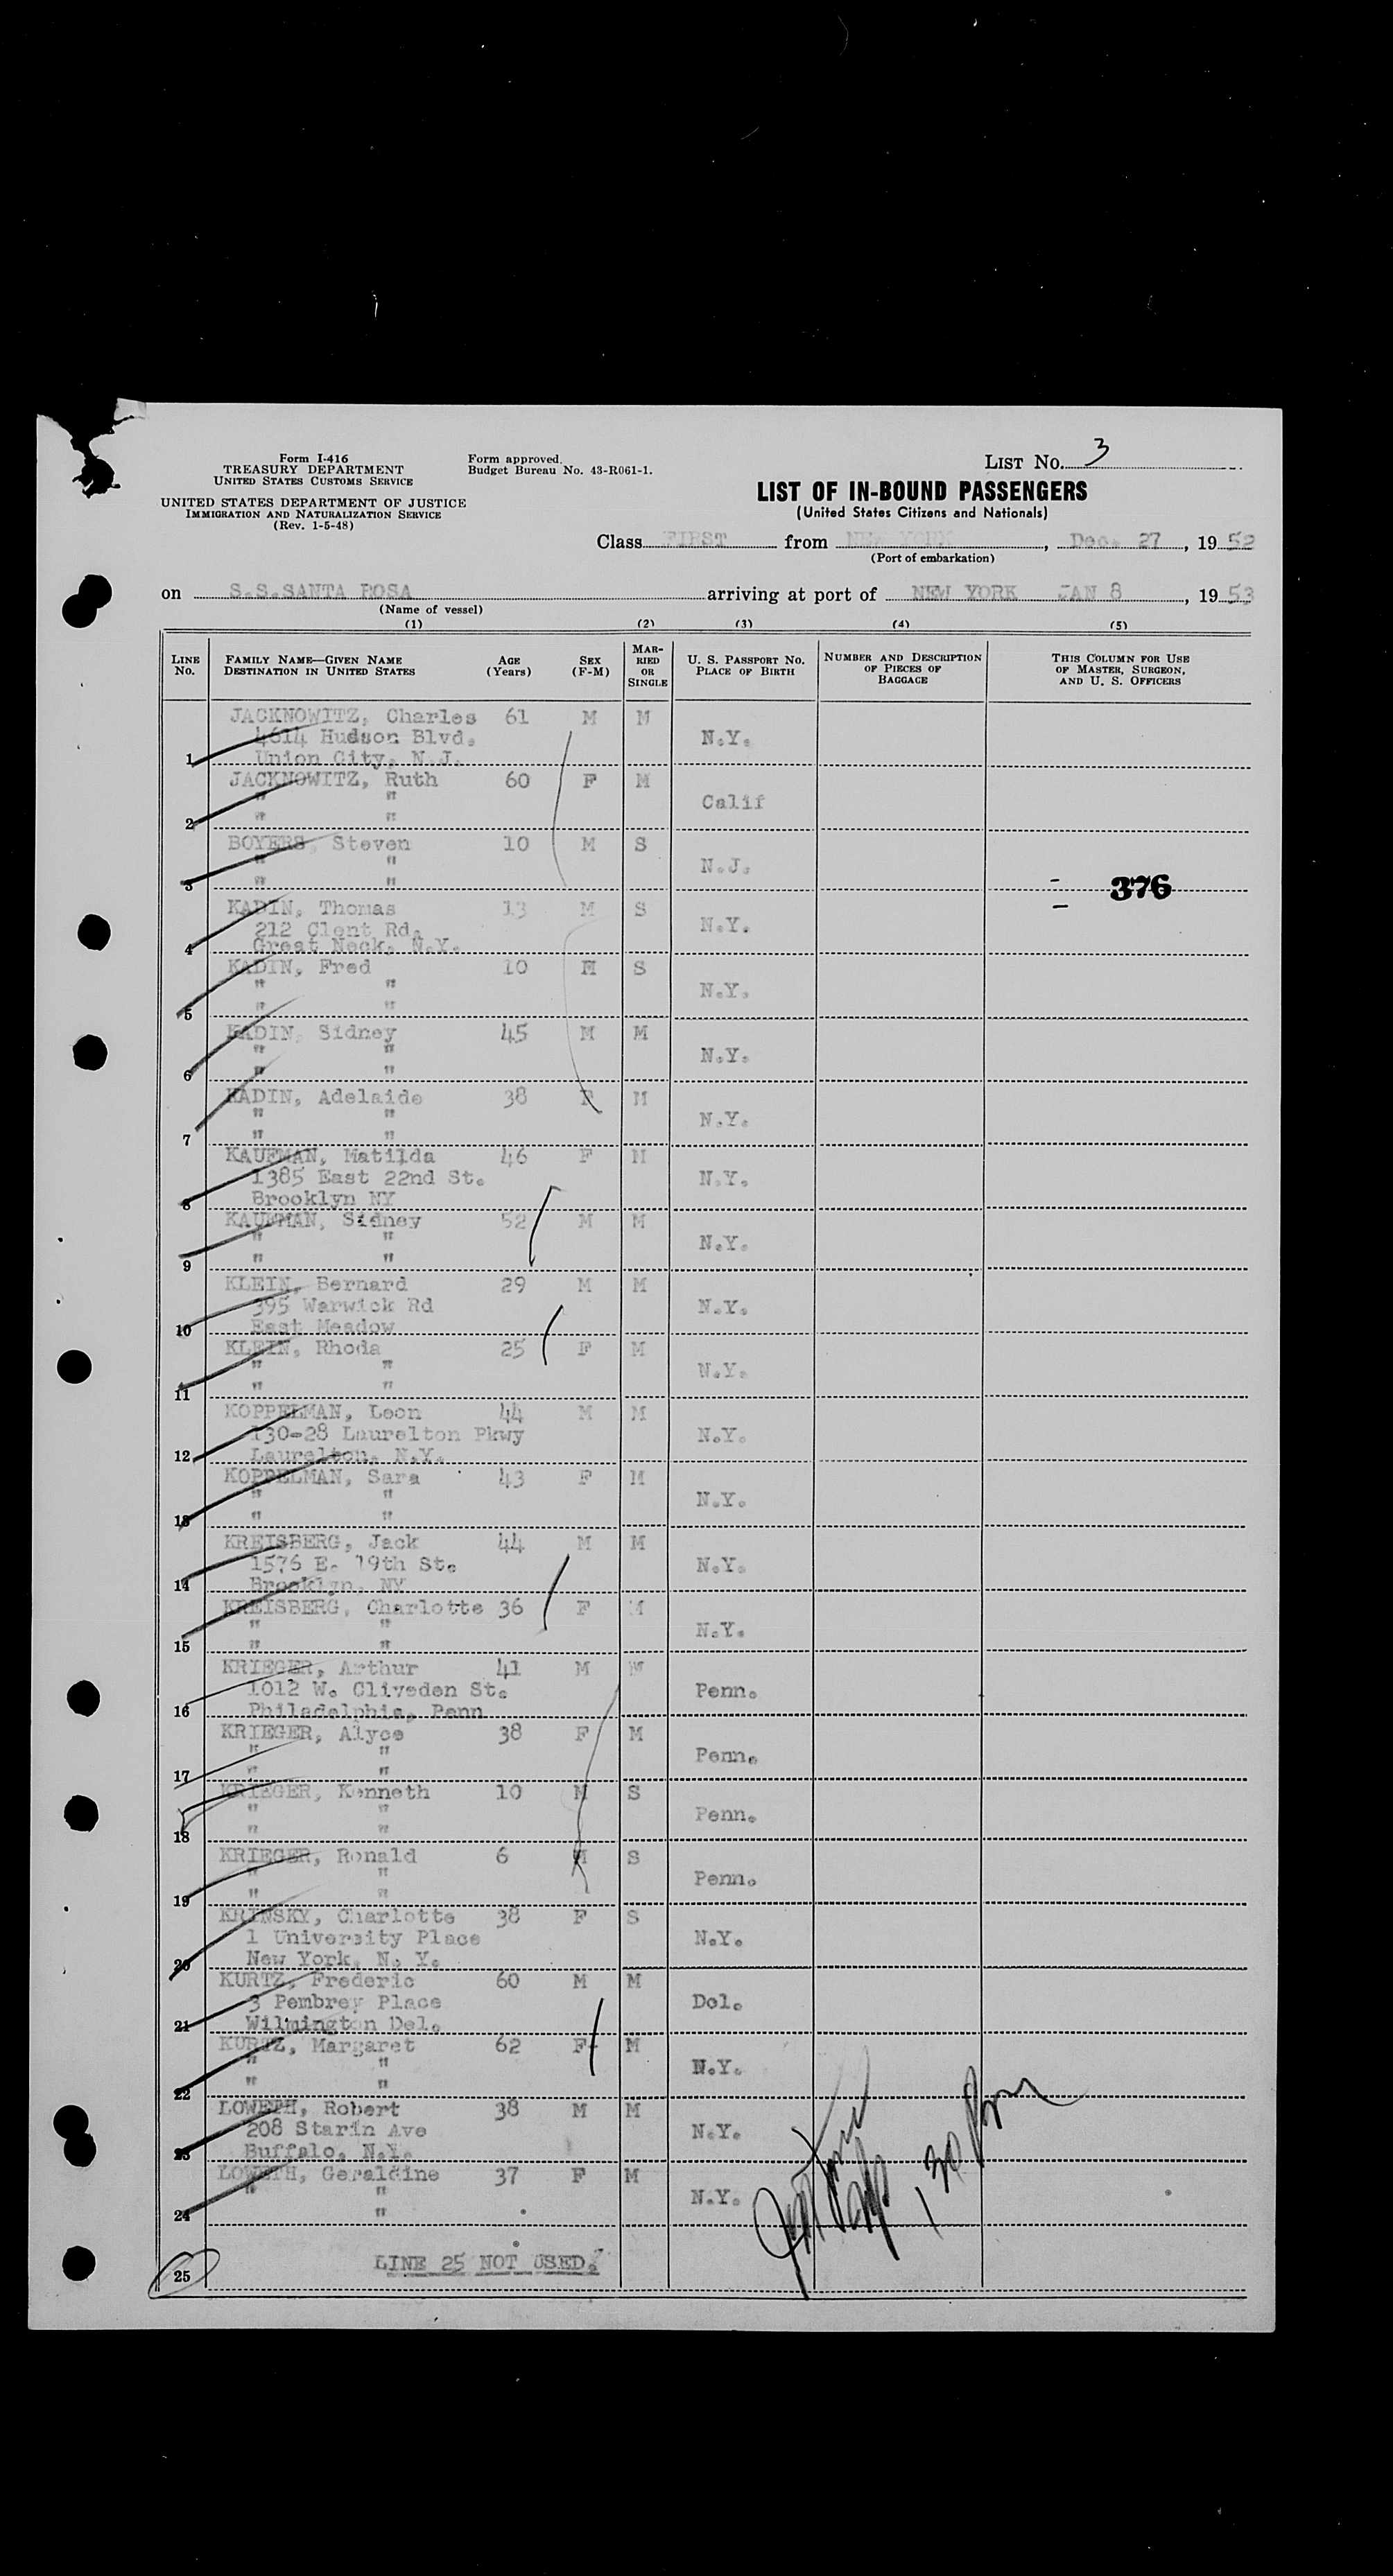 Form I-416
TREASURY DEPARTMENT
UNITED STATES CUSTOMS SERVICE
UNITED STATES DEPARTMENT OF JUSTICE
IMMIGRATION AND NATURALIZATION SERVICE
(Rev. 1-5-48)
Form approved.
Budget Bureau No. 43-R061-1.
LIST No. 3
LIST OF IN-BOUND PASSENGERS
(United States Citizens and Nationals)
Class FIRST from NEW YORK, Dec. 27, 1952
(Port of embarkation)
on S.S.SANTA ROSA arriving at port of NEW YORK JAN 8, 1953
(Name of vessel)
(1) (2) (3) (4) (5)
LINE No. FAMILY NAME—GIVEN NAME DESTINATION IN UNITED STATES AGE (Years) SEX (F-M) MARRIED OR SINGLE U. S. PASSPORT NO. PLACE OF BIRTH NUMBER AND DESCRIPTION OF PIECES OF BAGGAGE THIS COLUMN FOR USE OF MASTER, SURGEON, AND U. S. OFFICERS
JACKNOWITZ, Charles 61 M M
4614 Hudson Blvd. N.Y.
1 Union City, N.J.
JACKNOWITZ, Ruth 60 F M
" " Calif
2 " "
BOYERS, Steven 10 M S
" " N.J.
3 " " 376
KADIN, Thomas 13 M S
212 Clent Rd. N.Y.
4 Great Neck, N.Y.
KADIN, Fred 10 M S
" " N.Y.
5 " "
KADIN, Sidney 45 M M
" " N.Y.
6 " "
KADIN, Adelaide 38 F M
" " N.Y.
7 " "
KAUFMAN, Matilda 46 F M
1385 East 22nd St. N.Y.
8 Brooklyn NY
KAUFMAN, Sidney 52 M M
" " N.Y.
9 " "
KLEIN, Bernard 29 M M
395 Warwick Rd N.Y.
10 East Meadow
KLEIN, Rhoda 25 F M
" " N.Y.
11 " "
KOPPELMAN, Leon 44 M M
130-28 Laurelton Pkwy N.Y.
12 Laurelton, N.Y.
KOPPELMAN, Sara 43 F M
" " N.Y.
13 " "
KREISBERG, Jack 44 M M
1576 E. 19th St. N.Y.
14 Brooklyn, NY
KREISBERG, Charlotte 36 F M
" " N.Y.
15 " "
KRIEGER, Arthur 41 M M
1012 W. Cliveden St. Penn.
16 Philadelphia, Penn
KRIEGER, Alyce 38 F M
" " Penn.
17 " "
KRIEGER, Kenneth 10 M S
" " Penn.
18 " "
KRIEGER, Ronald 6 M S
" " Penn.
19 " "
KRINSKY, Charlotte 38 F S
1 University Place N.Y.
20 New York, N. Y.
KURTZ, Frederic 60 M M
3 Pembrey Place Del.
21 Wilmington Del.
KURTZ, Margaret 62 F M
" " N.Y.
22 " "
LOWETH, Robert 38 M M
208 Starin Ave N.Y.
23 Buffalo, N.Y.
LOWETH, Geraldine 37 F M
" " N.Y.
24 "
LINE 25 NOT USED.
25